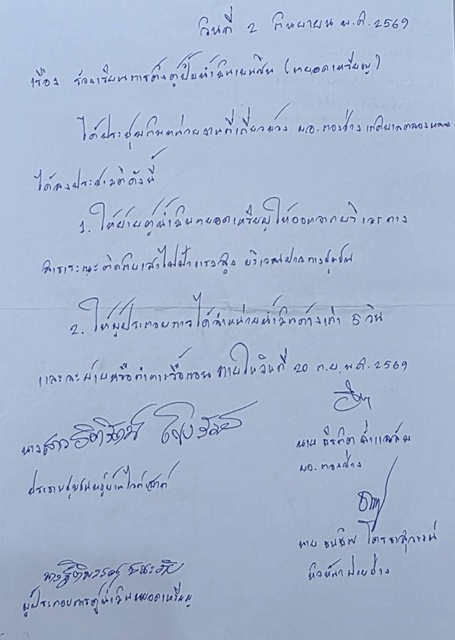 วันที่ 2 กันยายน พ.ศ. 2569
เรื่อง ร้องเรียนการตั้งตู้ปั๊มน้ำมันเบนซิน (หยอดเหรียญ)
ได้ประชุมกับหน่วยงานที่เกี่ยวข้อง ผอ.กองช่าง เทศบาลคลองหลวง
ได้ลงประชามติดังนี้
1. ให้ย้ายตู้น้ำมันหยอดเหรียญให้ออกจากบริเวณทาง
สาธารณะติดกับเสาไฟฟ้าแรงสูง บริเวณปากทางชุมชน
2. ให้ผู้ประกอบการได้จำหน่ายน้ำมันค้างเก่า 5 วัน
และจะย้ายหรือทำการรื้อถอน ภายในวันที่ 20 ก.ย. พ.ศ. 2569
นางสาว
นาย
ผอ.กองช่าง
ประธานชุมชน
นาย
หัวหน้าฝ่ายช่าง
ผู้ประกอบการตู้น้ำมันหยอดเหรียญ